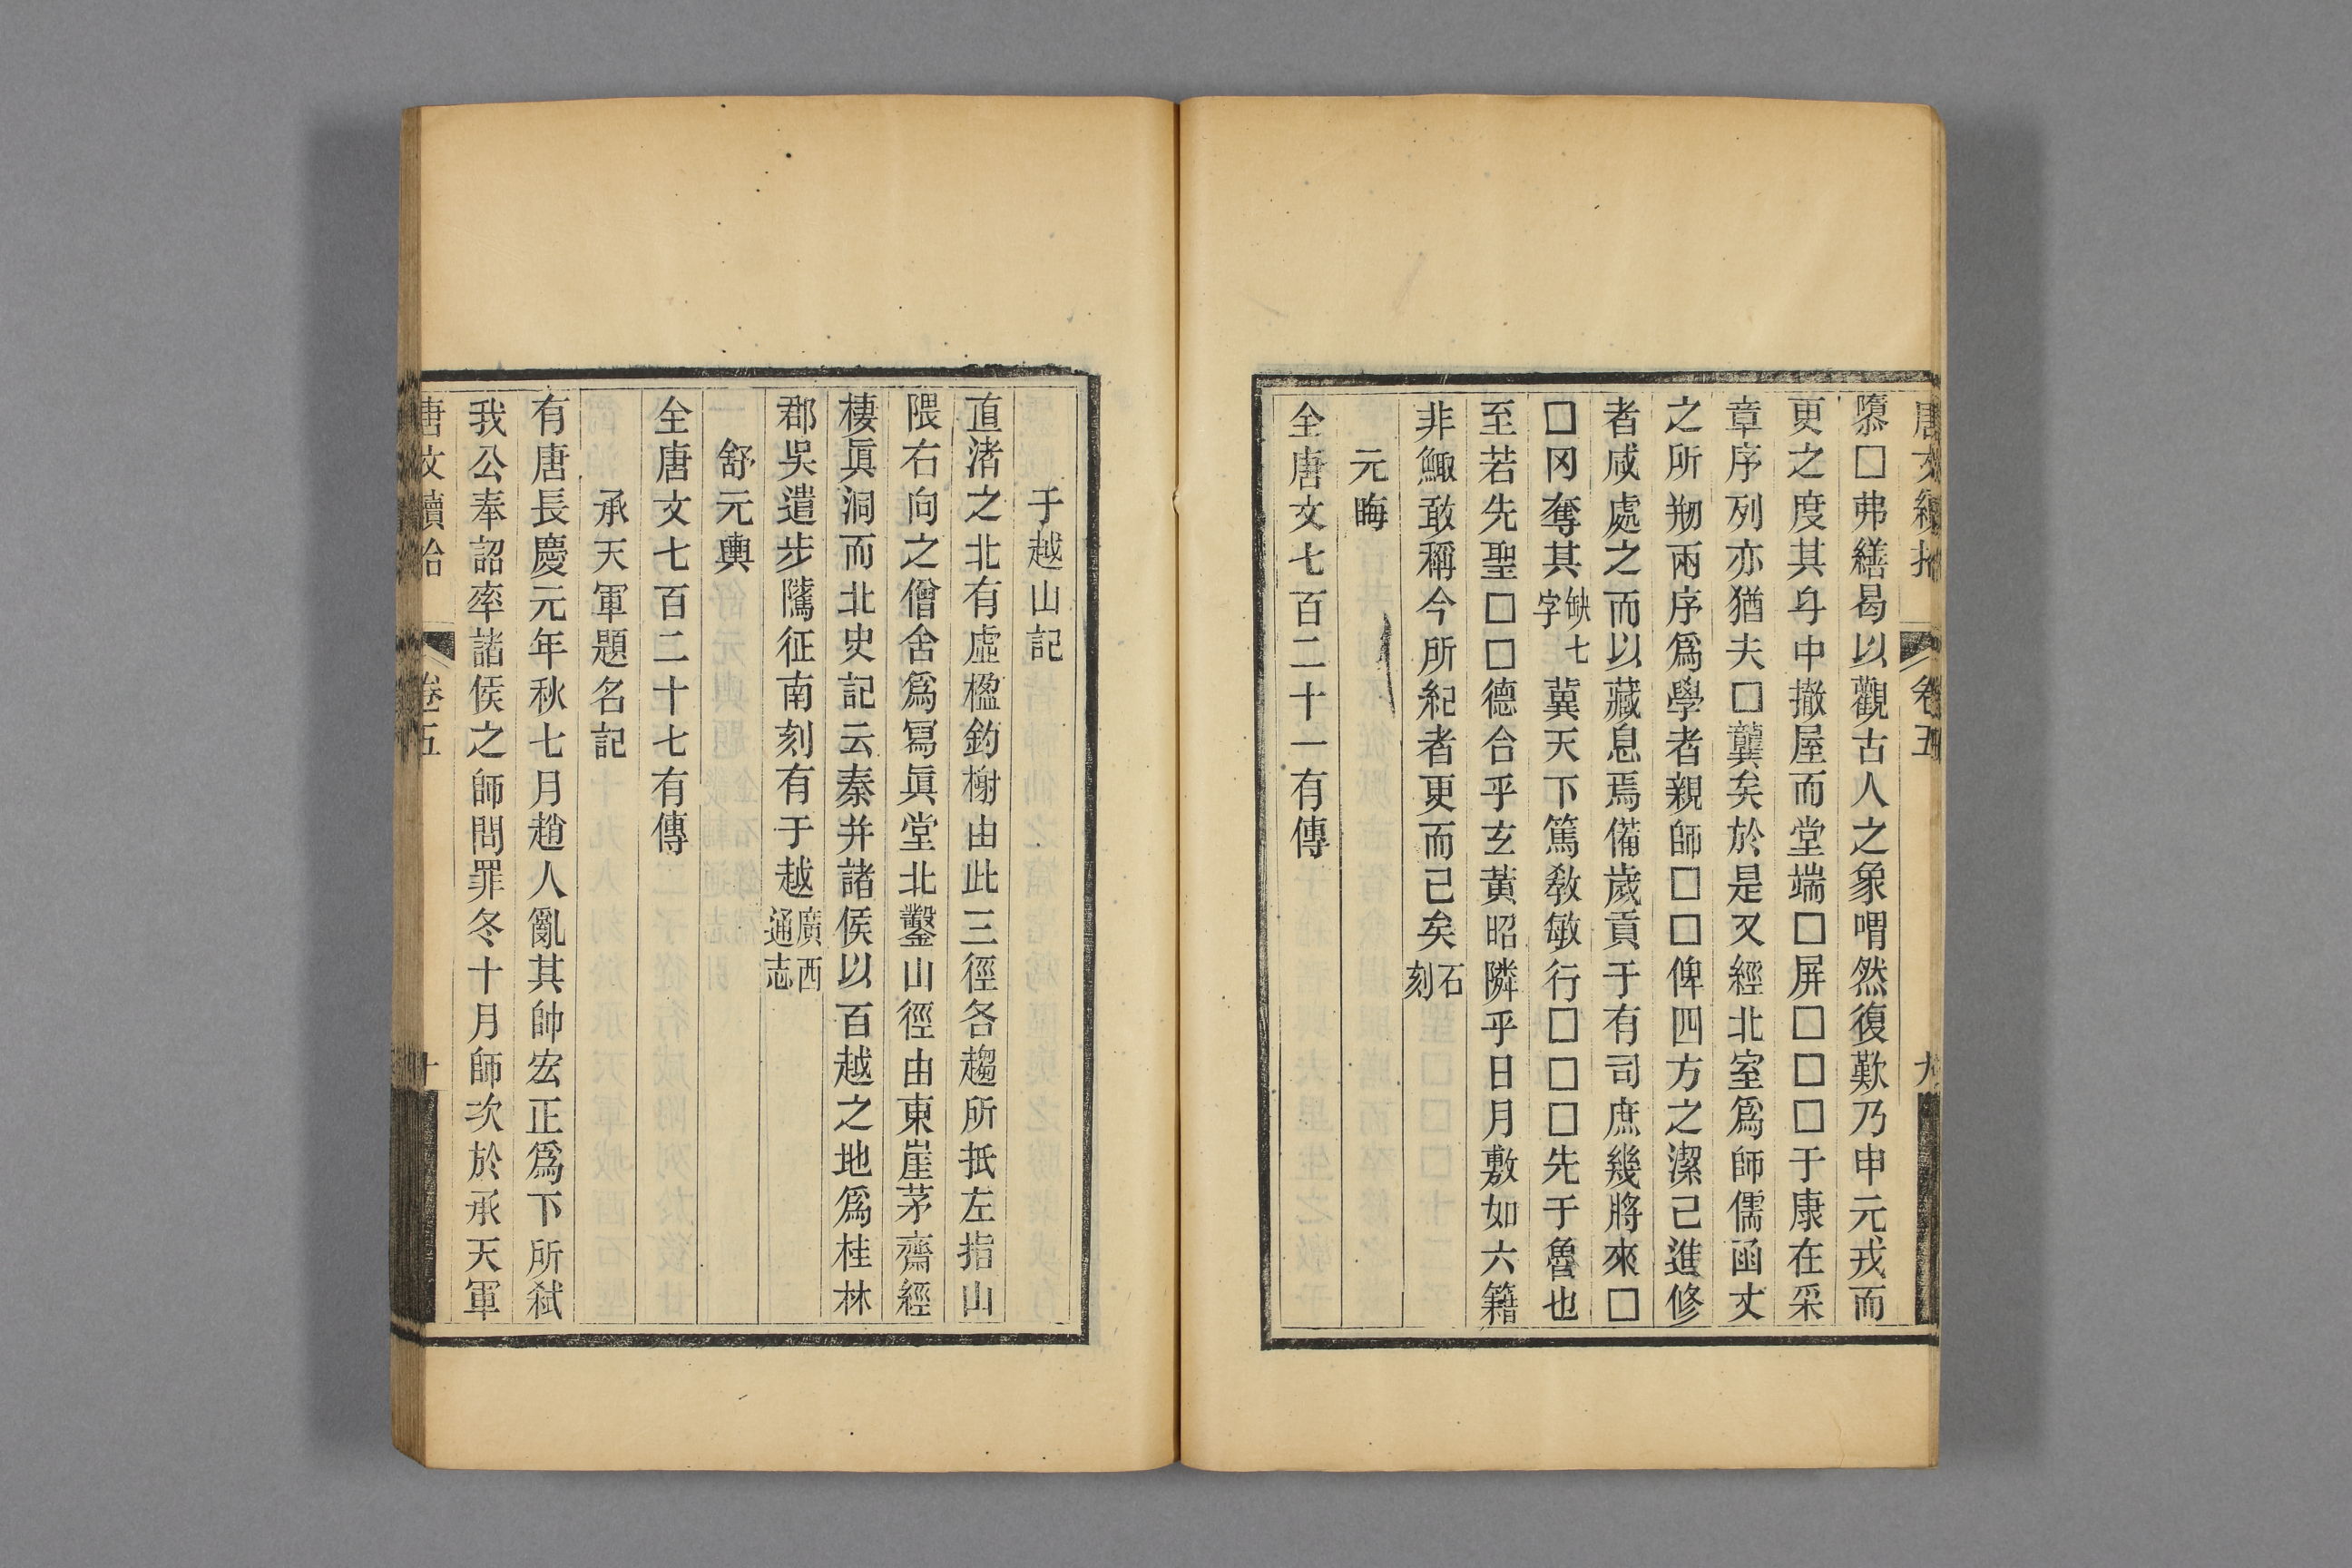 唐文續拾 卷五 九
隳□弗繕曷以觀古人之象喟然復歎乃申元戎而
更之度其身中撤屋而堂端□屏□□□于康在采
章序列亦猶夫□龔矣於是又經北室爲師儒函丈
之所剏兩序爲學者親師□□俾四方之潔己進修
者咸處之而以藏息焉備歲貢于有司庶幾將來□
□冈奪其缺七字冀天下篤敎敏行□□□先于魯也
至若先聖□□德合乎玄黃昭隣乎日月敷如六籍
非鯫敢稱今所紀者更而已矣石刻
元晦
全唐文七百二十一有傳
于越山記
直渚之北有虛楹釣榭由此三徑各趨所抵左指山
隈右向之僧舍爲冩眞堂北鑿山徑由東崖茅齋經
棲眞洞而北史記云秦并諸侯以百越之地爲桂林
郡吳遣步隲征南刻有于越廣西通志
舒元輿
全唐文七百二十七有傳
承天軍題名記
有唐長慶元年秋七月趙人亂其帥宏正爲下所弑
我公奉詔率諸侯之師問罪冬十月師次於承天軍
唐文續拾 卷五 十